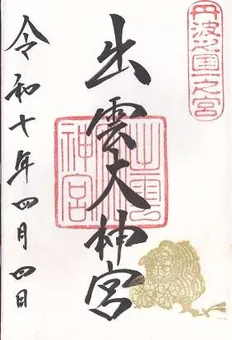 丹波之国一之宮
出雲大神宮
出雲大神宮
令和七年四月四日